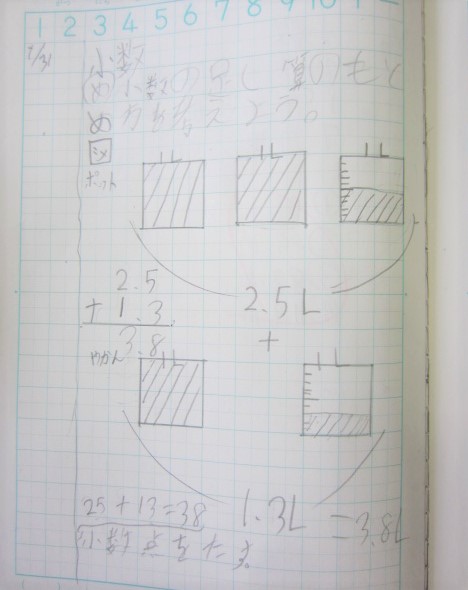 1 2 3 4 5 6 7 8 9 10
小数
め 小数の足し算のもと
め方を考えよう。
1L 1L 1L
ポット
2.5
+ 1.3
3.8
2.5L
+
やかん
1L 1L
1.3L =3.8L
25+13=38
小数点をたす。